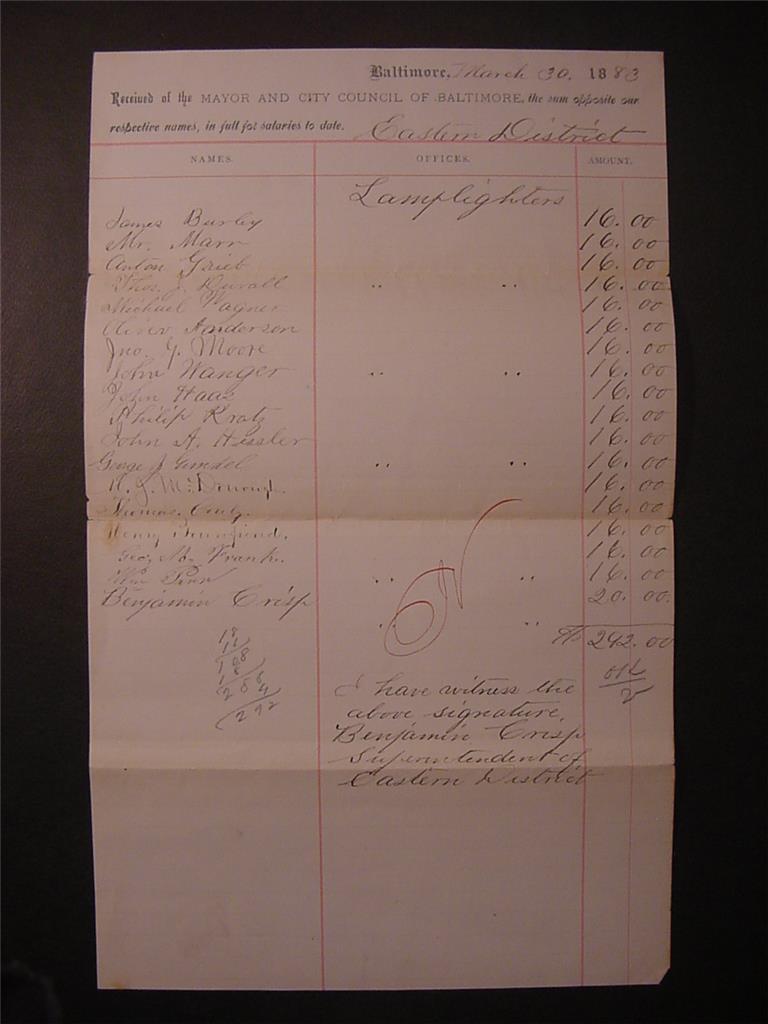 Baltimore, March 30, 1883
Received of the MAYOR AND CITY COUNCIL OF BALTIMORE, the sum opposite our
respective names, in full for salaries to date. Eastern District
NAMES. OFFICES. AMOUNT.
Lamplighters
James Burley 16.00
Mr. Marr 16.00
Anton Grieb 16.00
Thos. J. Duvall " " 16.00
Michael Wagner 16.00
Oliver Anderson 16.00
Jno. G. Moore 16.00
John Wanger " " 16.00
John Haas 16.00
Philip Kratz 16.00
John A. Hissler 16.00
George J. " " 16.00
J. McDonough 16.00
Thomas 16.00
Henry 16.00
Geo. M. Frank. 16.00
Wm " " 16.00
Benjamin Crisp " " 20.00.
$ 292.00
OK
I have witness the
above signature,
Benjamin Crisp
Superintendent of
Eastern District